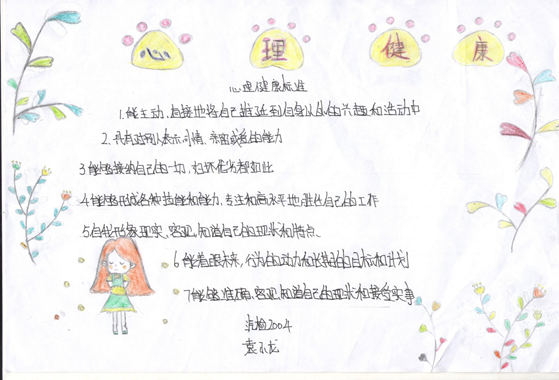 心理健康
心理健康标准
1.能主动、直接地将自己推延到自身以外的兴趣和活动中
2.具有对别人表示同情、亲密或爱的能力
3.能够接纳自己的一切，好坏优劣都如此
4.能够形成各种技能和能力，专注和高水平地胜任自己的工作
5.自我形象现实、客观，知道自己的现状和特点
6.能着眼未来，行为的动力和长期的目标和计划
7.能够准确、客观，知道自己的现状和接受实事
2004